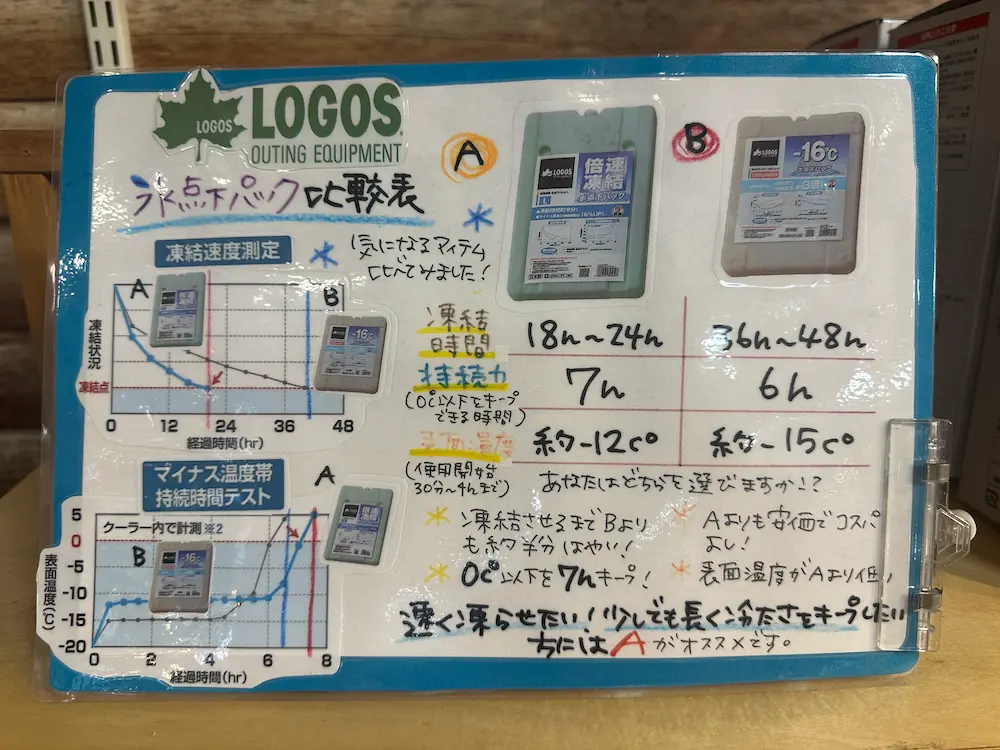 LOGOS
LOGOS
OUTING EQUIPMENT
氷点下パック比較表
気になるアイテム
比べてみました!
A
B
LOGOS
倍速
凍結
氷点下パック
L
LOGOS
-16℃
凍結速度測定
A
B
倍速
凍結
-16℃
凍結状況
凍結点
0 12 24 36 48
経過時間(hr)
マイナス温度帯
持続時間テスト
A
クーラー内で計測 ※2
B
-16℃
倍速
凍結
表面温度(℃)
5
0
-5
-10
-15
-20
0 2 4 6 8
経過時間(hr)
凍結
時間
18h~24h
36h~48h
持続力
(0c°以下をキープ
できる時間)
7h
6h
表面温度
(使用開始
30分~4hまで)
約-12c°
約-15c°
あなたはどちらを選びますか!?
凍結させるまでBより
も約半分はやい!
0c°以下を7hキープ!
Aよりも安価でコスパ
よし!
表面温度がAより低い
速く凍らせたい!少しでも長く冷たさをキープしたい
方にはAがオススメです。